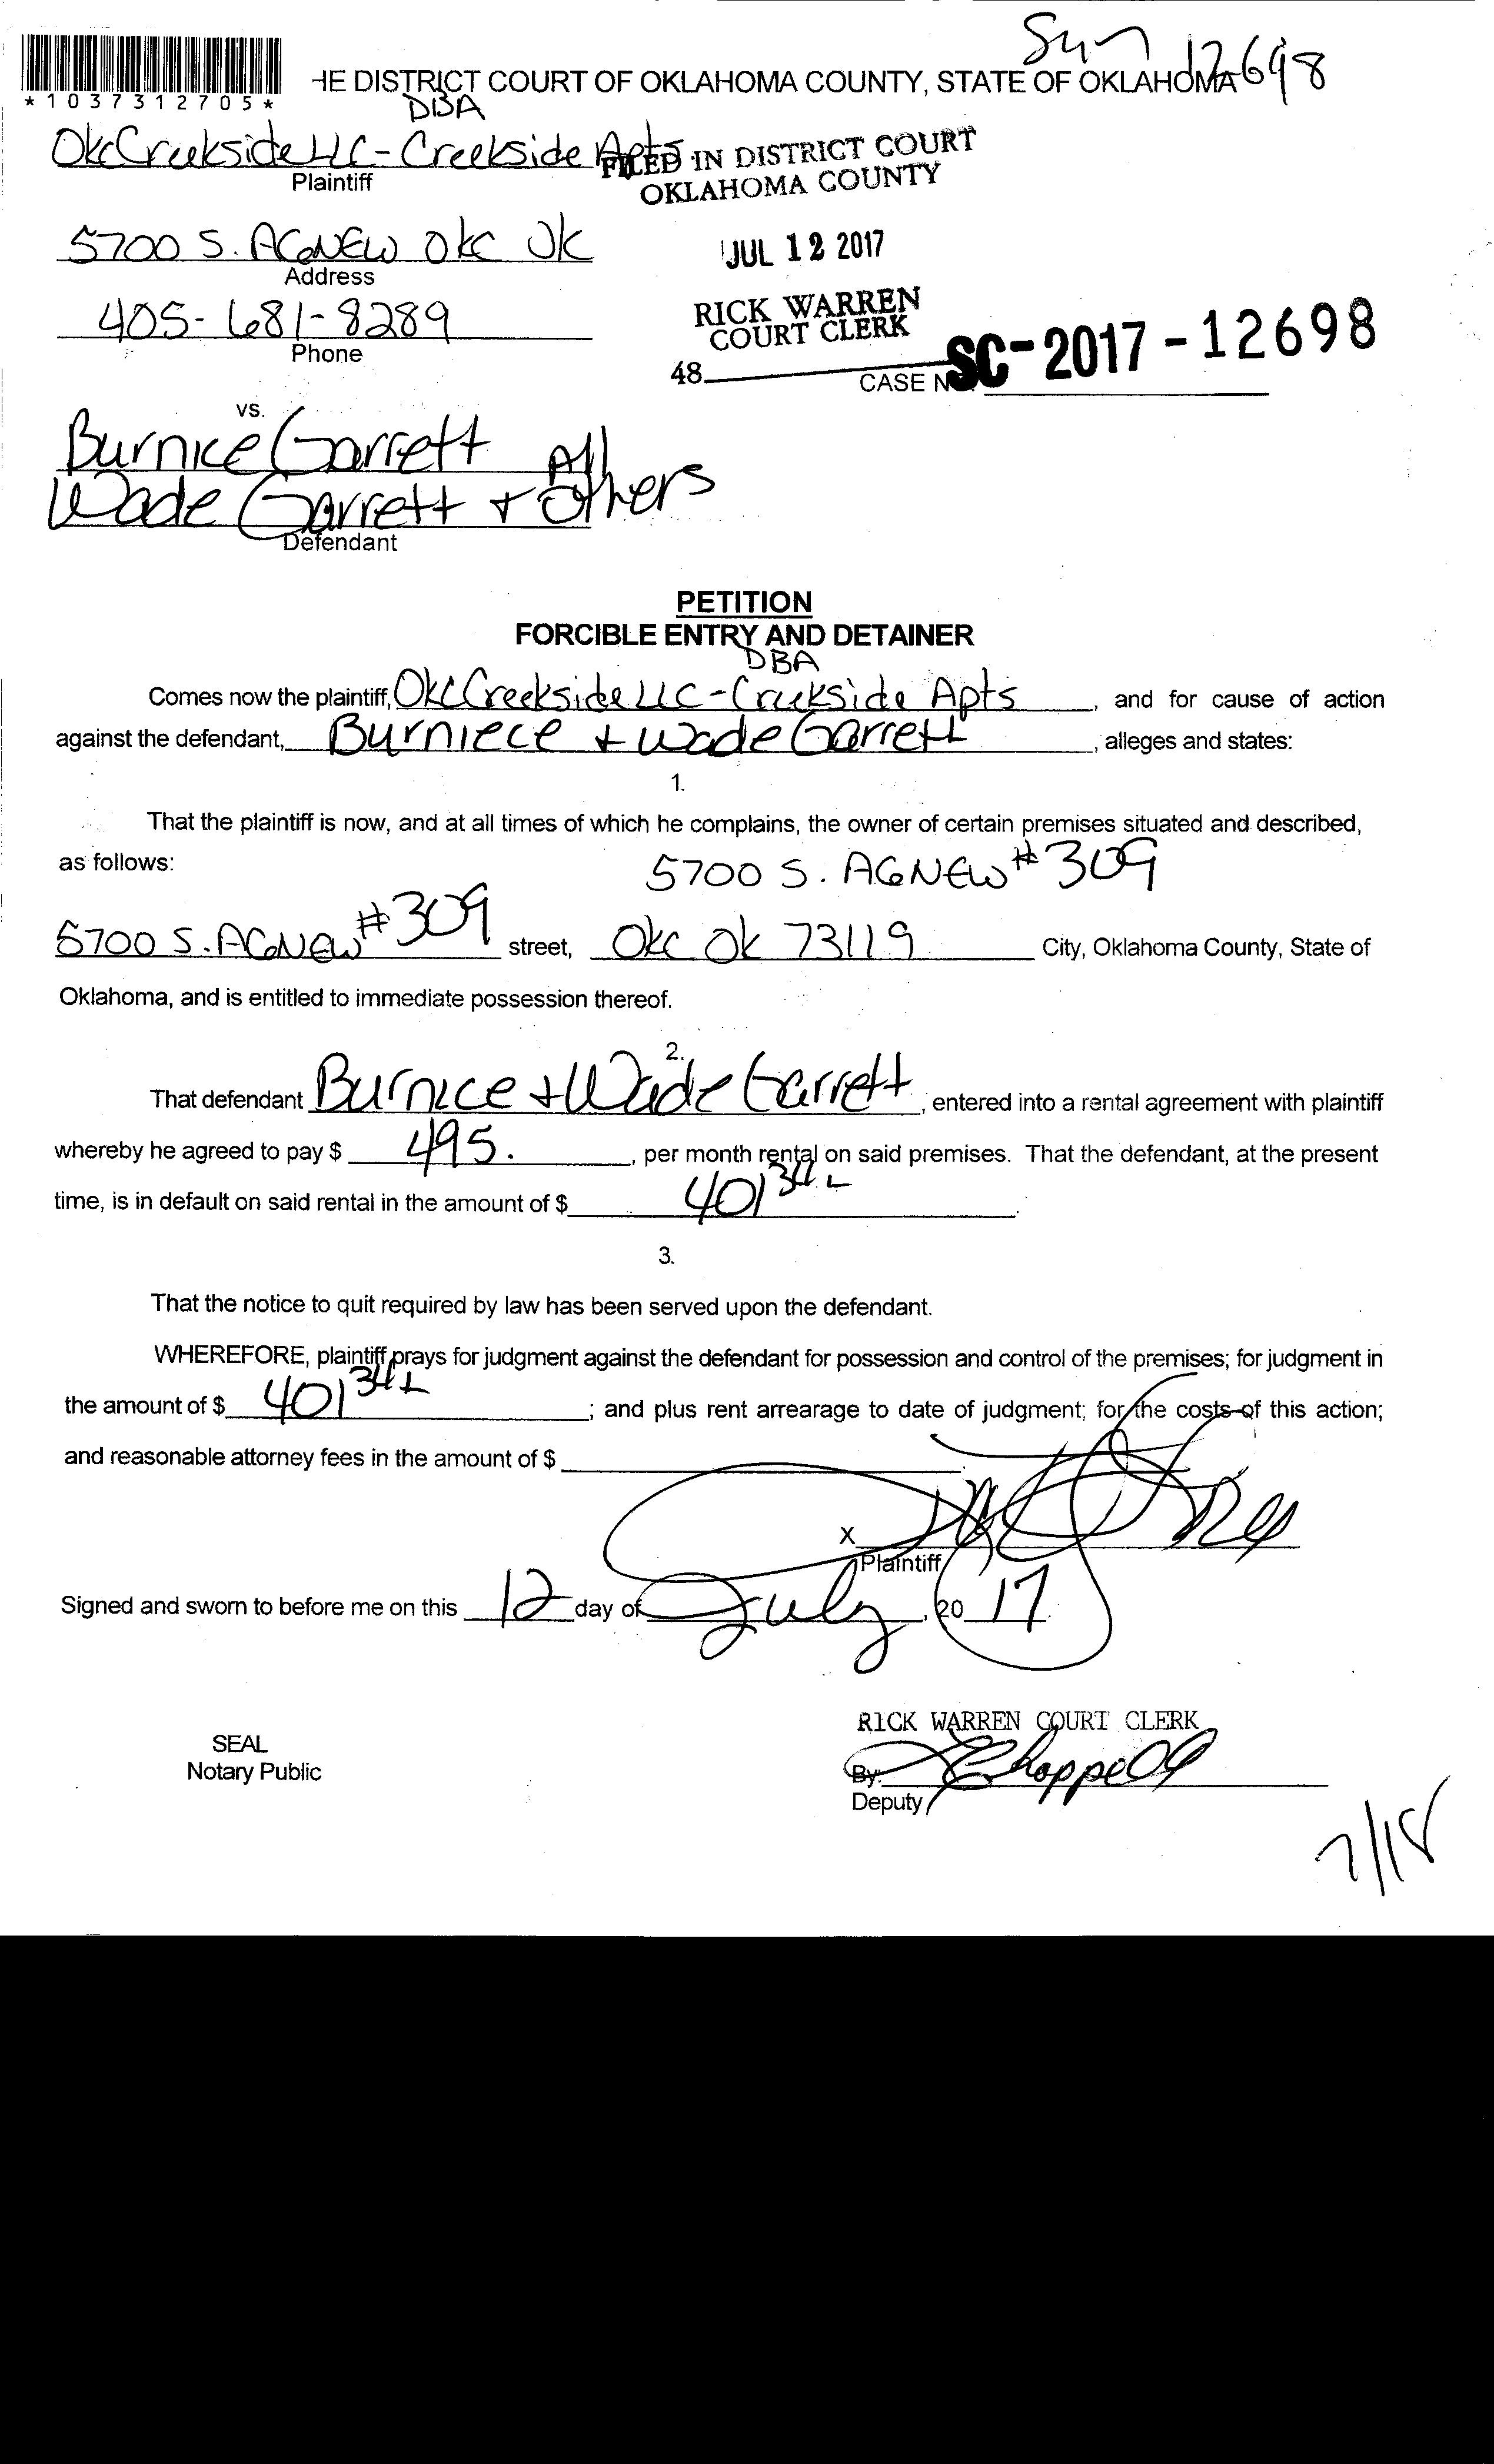 Sun 12698
*1037312705*
HE DISTRICT COURT OF OKLAHOMA COUNTY, STATE OF OKLAHOMA
DBA
Okc Creekside LLC - Creekside Apts
Plaintiff
FILED IN DISTRICT COURT
OKLAHOMA COUNTY
5700 S. AGNEW Okc Ok
Address
JUL 12 2017
405-681-8289
Phone
RICK WARREN
COURT CLERK
48
CASE N SC-2017-12698
vs.
Burnice Garrett
Wade Garrett + All Others
Defendant
PETITION
FORCIBLE ENTRY AND DETAINER
DBA
Comes now the plaintiff, Okc Creekside LLC - Creekside Apts, and for cause of action
against the defendant, Burniece + Wade Garrett, alleges and states:
1.
That the plaintiff is now, and at all times of which he complains, the owner of certain premises situated and described,
as follows: 5700 S. AGNEW #309
5700 S. AGNEW #309 street, Okc Ok 73119 City, Oklahoma County, State of
Oklahoma, and is entitled to immediate possession thereof.
2.
That defendant Burnice + Wade Garrett, entered into a rental agreement with plaintiff
whereby he agreed to pay $ 495., per month rental on said premises. That the defendant, at the present
time, is in default on said rental in the amount of $ 401 34.
3.
That the notice to quit required by law has been served upon the defendant.
WHEREFORE, plaintiff prays for judgment against the defendant for possession and control of the premises; for judgment in
the amount of $ 401 34; and plus rent arrearage to date of judgment; for the costs of this action;
and reasonable attorney fees in the amount of $
X
Plaintiff
Signed and sworn to before me on this 12 day of July, 20 17.
RICK WARREN COURT CLERK
SEAL
Notary Public
By: Chappell
Deputy
7/18